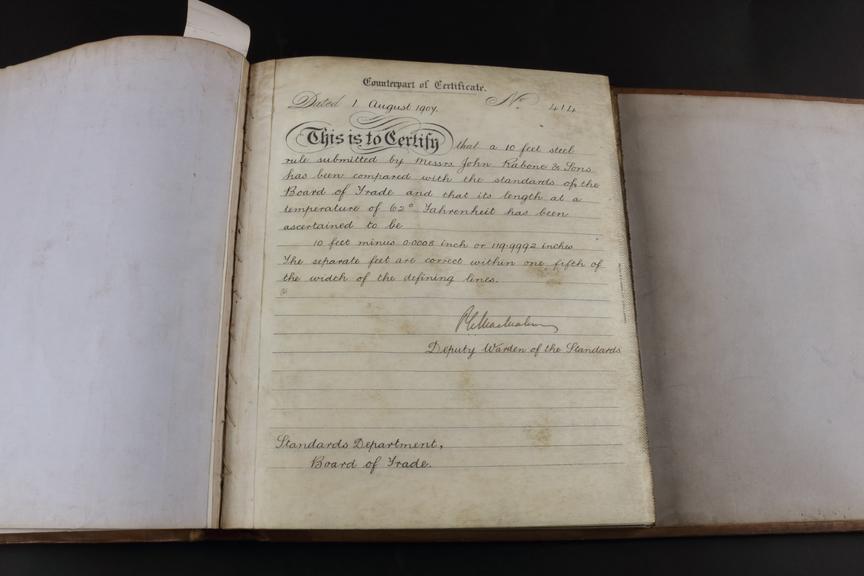 Counterpart of Certificate.
Dated 1 August 1907. No. 414
This is to Certify that a 10 feet steel
rule submitted by Messrs John Rabone & Sons
has been compared with the standards of the
Board of Trade and that its length at a
temperature of 62° Fahrenheit has been
ascertained to be
10 feet minus 0.0008 inch or 119.9992 inches
The separate feet are correct within one fifth of
the width of the defining lines.
Deputy Warden of the Standards
Standards Department,
Board of Trade.